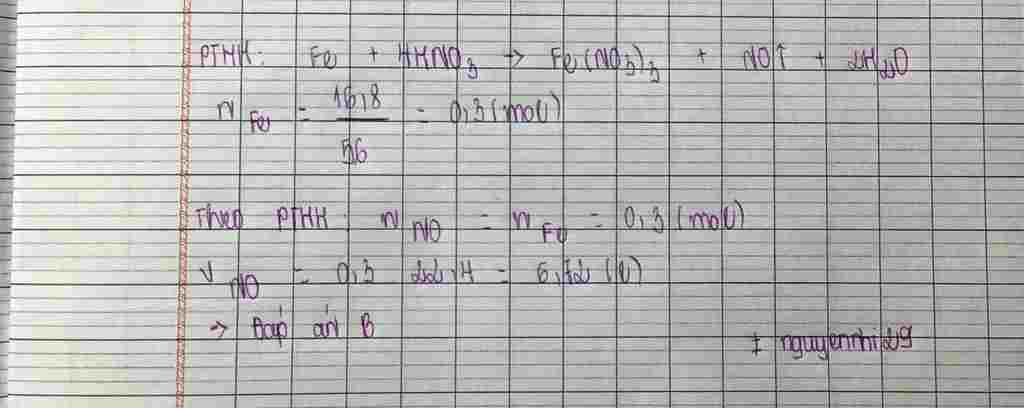 PTHH: Fe + 4HNO3 → Fe(NO3)3 + NO↑ + 2H2O
n Fe = 16,8 / 56 = 0,3 (mol)
Theo PTHH: n NO = n Fe = 0,3 (mol)
V NO = 0,3 . 22,4 = 6,72 (l)
→ Đáp án B
# nguyennhi29